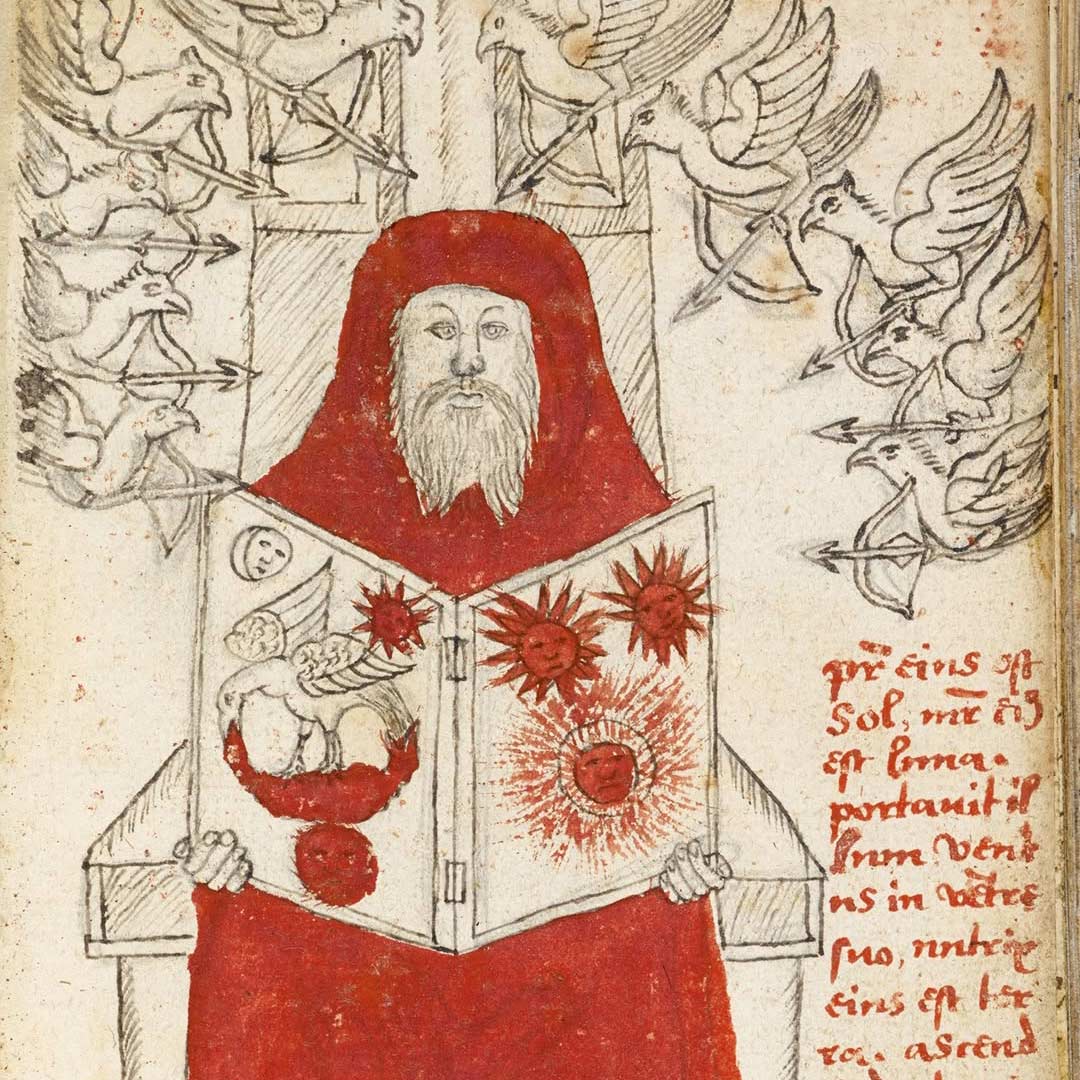 pr̄ eius est
Sol, mr̄ ei9
est luna.
portauit il
lum uent
us in uētre
suo, nutrix
eius est ter
ra. ascend